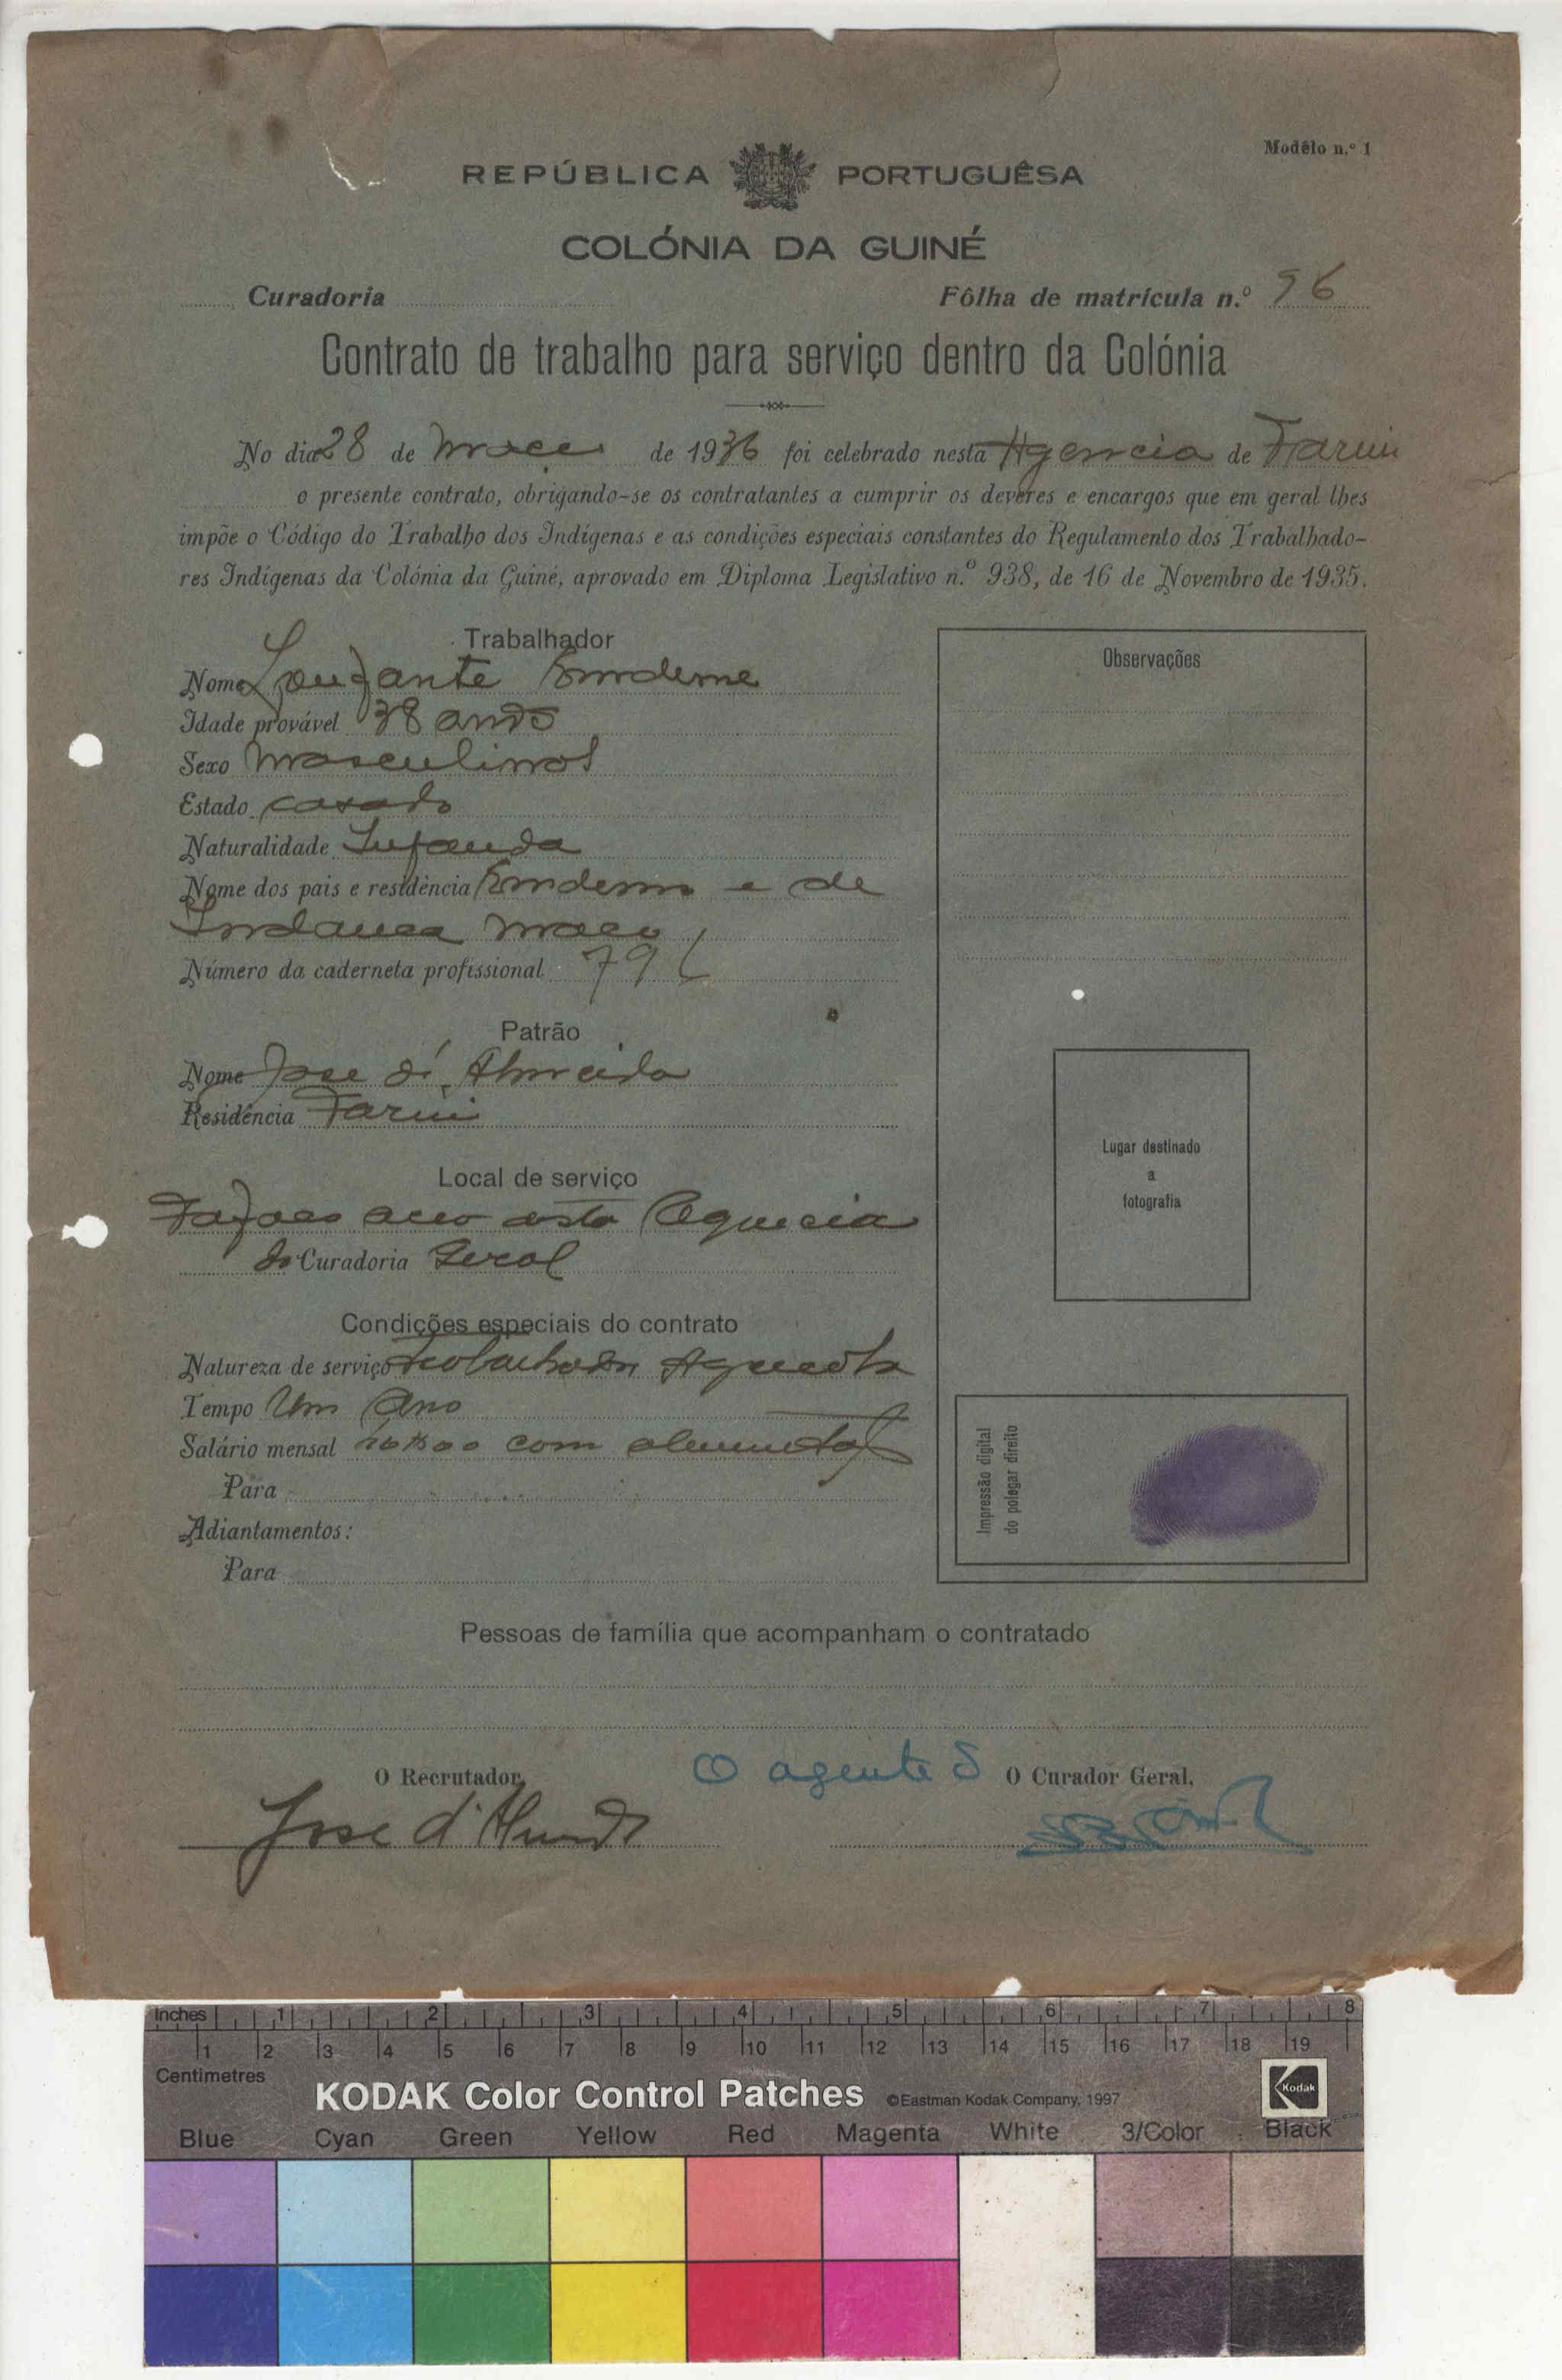 Modêlo n.º 1
REPÚBLICA PORTUGUÊSA
COLÓNIA DA GUINÉ
Curadoria Fôlha de matrícula n.º 96
Contrato de trabalho para serviço dentro da Colónia
No dia 28 de de 1936 foi celebrado nesta Agencia de Farim
o presente contrato, obrigando-se os contratantes a cumprir os deveres e encargos que em geral lhes
impõe o Código do Trabalho dos Indígenas e as condições especiais constantes do Regulamento dos Trabalhado-
res Indígenas da Colónia da Guiné, aprovado em Diploma Legislativo n.º 938, de 16 de Novembro de 1935.
Trabalhador
Nome
Idade provável 38 anos
Sexo masculino
Estado casado
Naturalidade
Nome dos pais e residência e de
Número da caderneta profissional 79
Patrão
Nome Jose d'Almeida
Residência Farim
Local de serviço
desta Agencia
da Curadoria Geral
Condições especiais do contrato
Natureza de serviço trabalhador Agricola
Tempo Um Ano
Salário mensal com
Para
Adiantamentos:
Para
Observações
Lugar destinado
a
fotografia
Impressão digital
do polegar direito
Pessoas de família que acompanham o contratado
O Recrutador, O agente d O Curador Geral,
Jose d'Almeida
Inches 1 2 3 4 5 6 7 8
1 2 3 4 5 6 7 8 9 10 11 12 13 14 15 16 17 18 19
Centimetres
KODAK Color Control Patches ©Eastman Kodak Company, 1997 Kodak
Blue Cyan Green Yellow Red Magenta White 3/Color Black